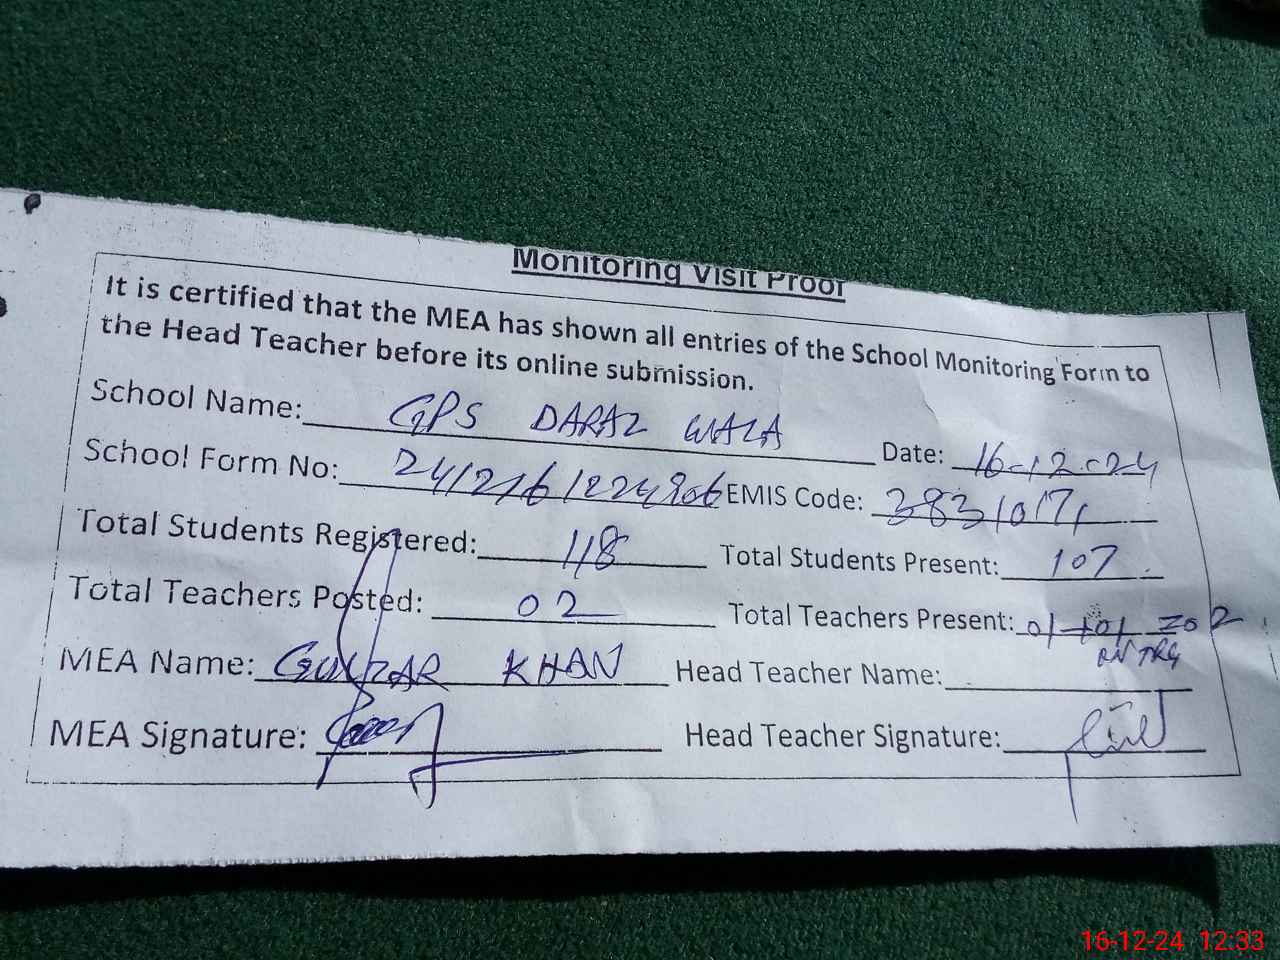 Monitoring Visit Proof
It is certified that the MEA has shown all entries of the School Monitoring Form to
the Head Teacher before its online submission.
School Name: GPS DARAZ WALA Date: 16-12-24
School Form No: 2412161224906 EMIS Code: 38310171
Total Students Registered: 118 Total Students Present: 107
Total Teachers Posted: 02 Total Teachers Present: 01+01=02
ON TRG
MEA Name: GULZAR KHAN Head Teacher Name:
MEA Signature: Head Teacher Signature:
16-12-24 12:33